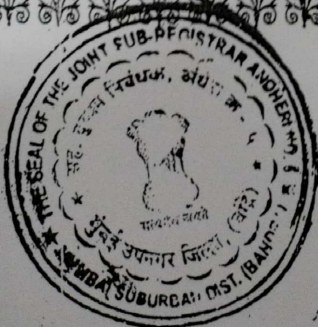 THE SEAL OF THE JOINT SUB-REGISTRAR ANDHERI NO.
MUMBAI SUBURBAN DIST. (BANDRA)
सह. दुय्यम निबंधक, अंधेरी क्र. - ५
मुंबई उपनगर जिल्हा, (बांद्रा)
सत्यमेव जयते